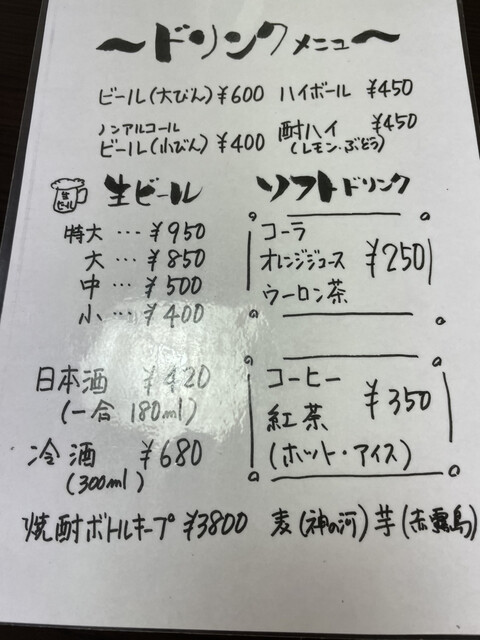 ～ドリンクメニュー～
ビール(大びん)¥600 ハイボール ¥450
ノンアルコール
ビール(小びん)¥400 酎ハイ ¥450
(レモン・ぶどう)
生ビール
生
ビール
特大…¥950
大…¥850
中…¥500
小…¥400
ソフトドリンク
コーラ
オレンジジュース ¥250
ウーロン茶
日本酒 ¥420
(一合 180ml)
冷酒 ¥680
(300ml)
コーヒー
紅茶 ¥350
(ホット・アイス)
焼酎ボトルキープ ¥3800 麦(神の河)芋(赤霧島)